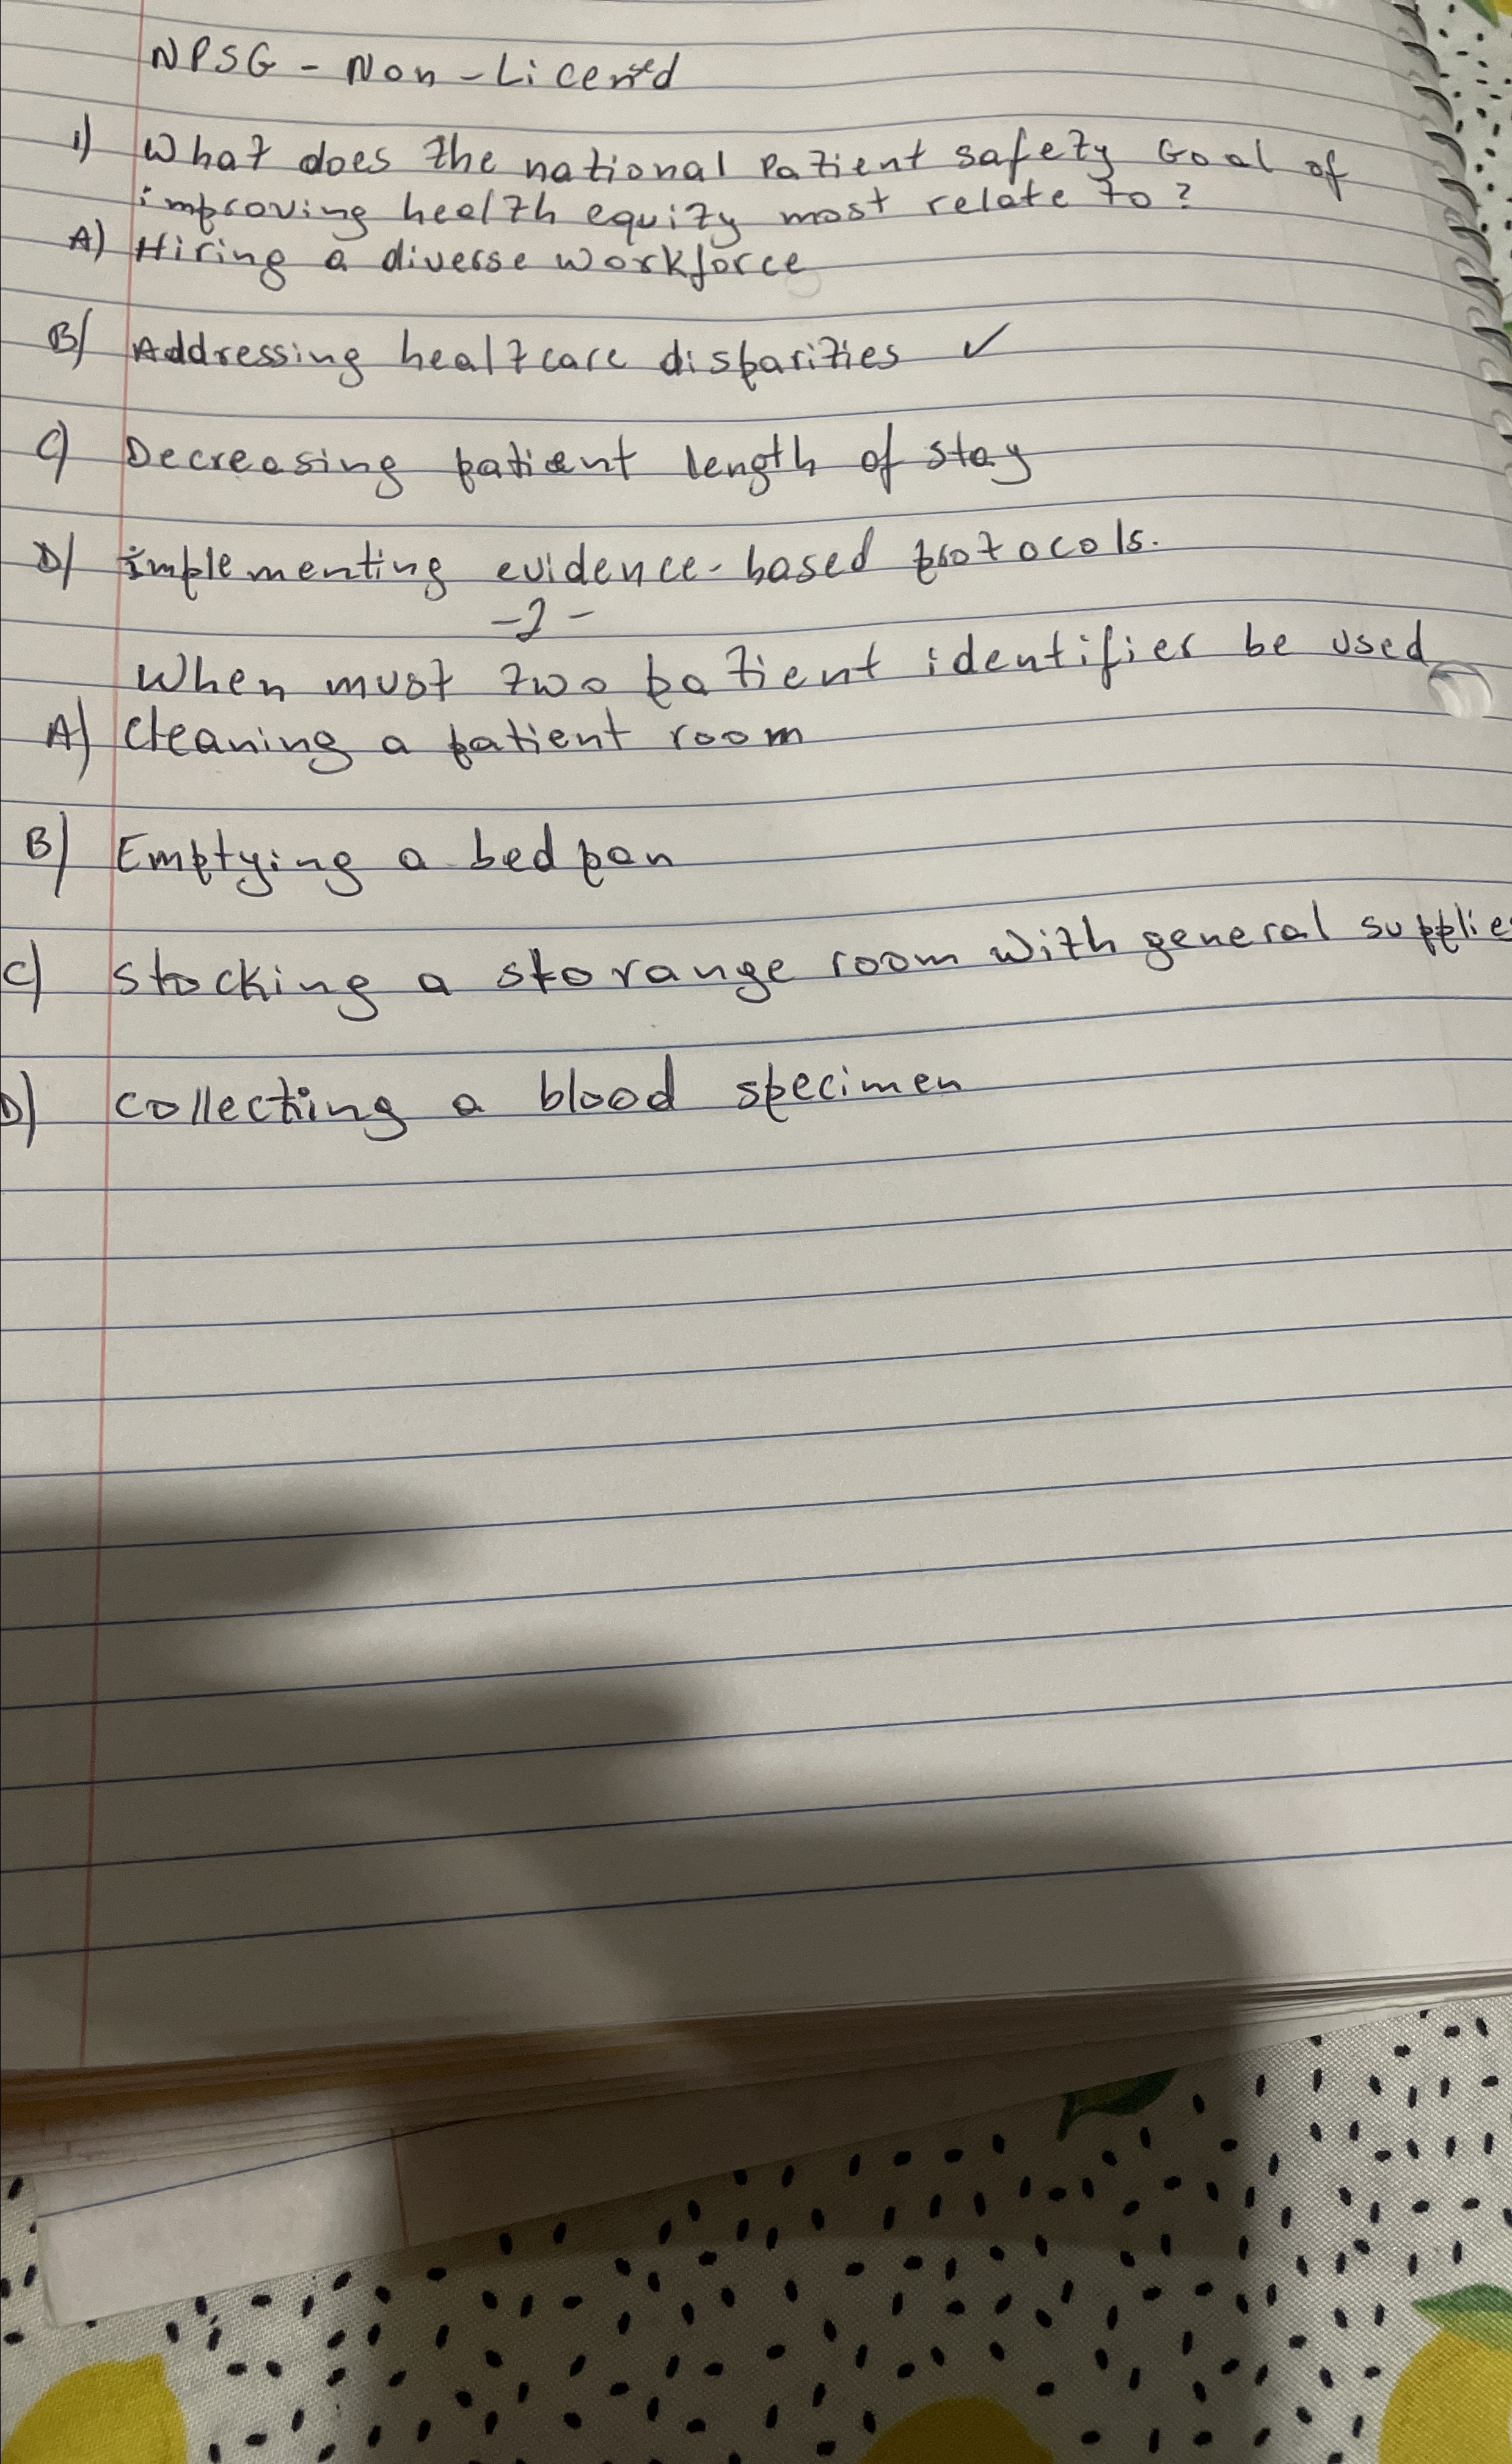 NPSG - Non - Licensed
1) What does the national Patient safety Goal of
improving health equity most relate to?
A) Hiring a diverse workforce
B) Addressing healtcare disparities ✓
C) Decreasing patient length of stay
D) implementing evidence-based protocols.
-2-
When must two patient identifier be used
A) cleaning a patient room
B) Emptying a bed pan
C) stocking a storange room with general supplies
D) collecting a blood specimen